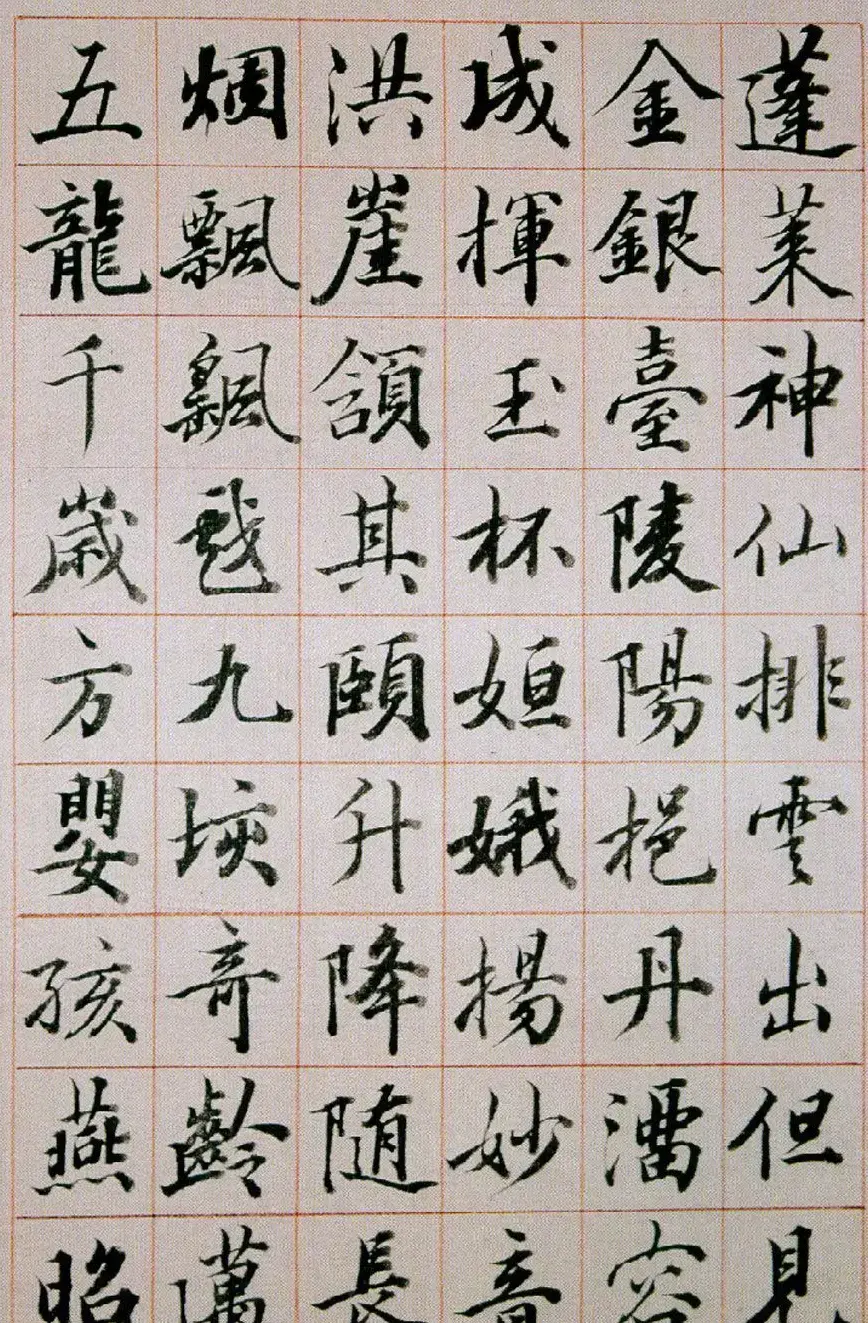 蓬萊神仙排雲出但見
金銀臺陵陽挹丹澑容
成揮玉杯姮娥揚妙音
洪崖頷其頤升降随長
烟飄颻戲九垓奇齡邁
五龍千歲方嬰孩燕昭